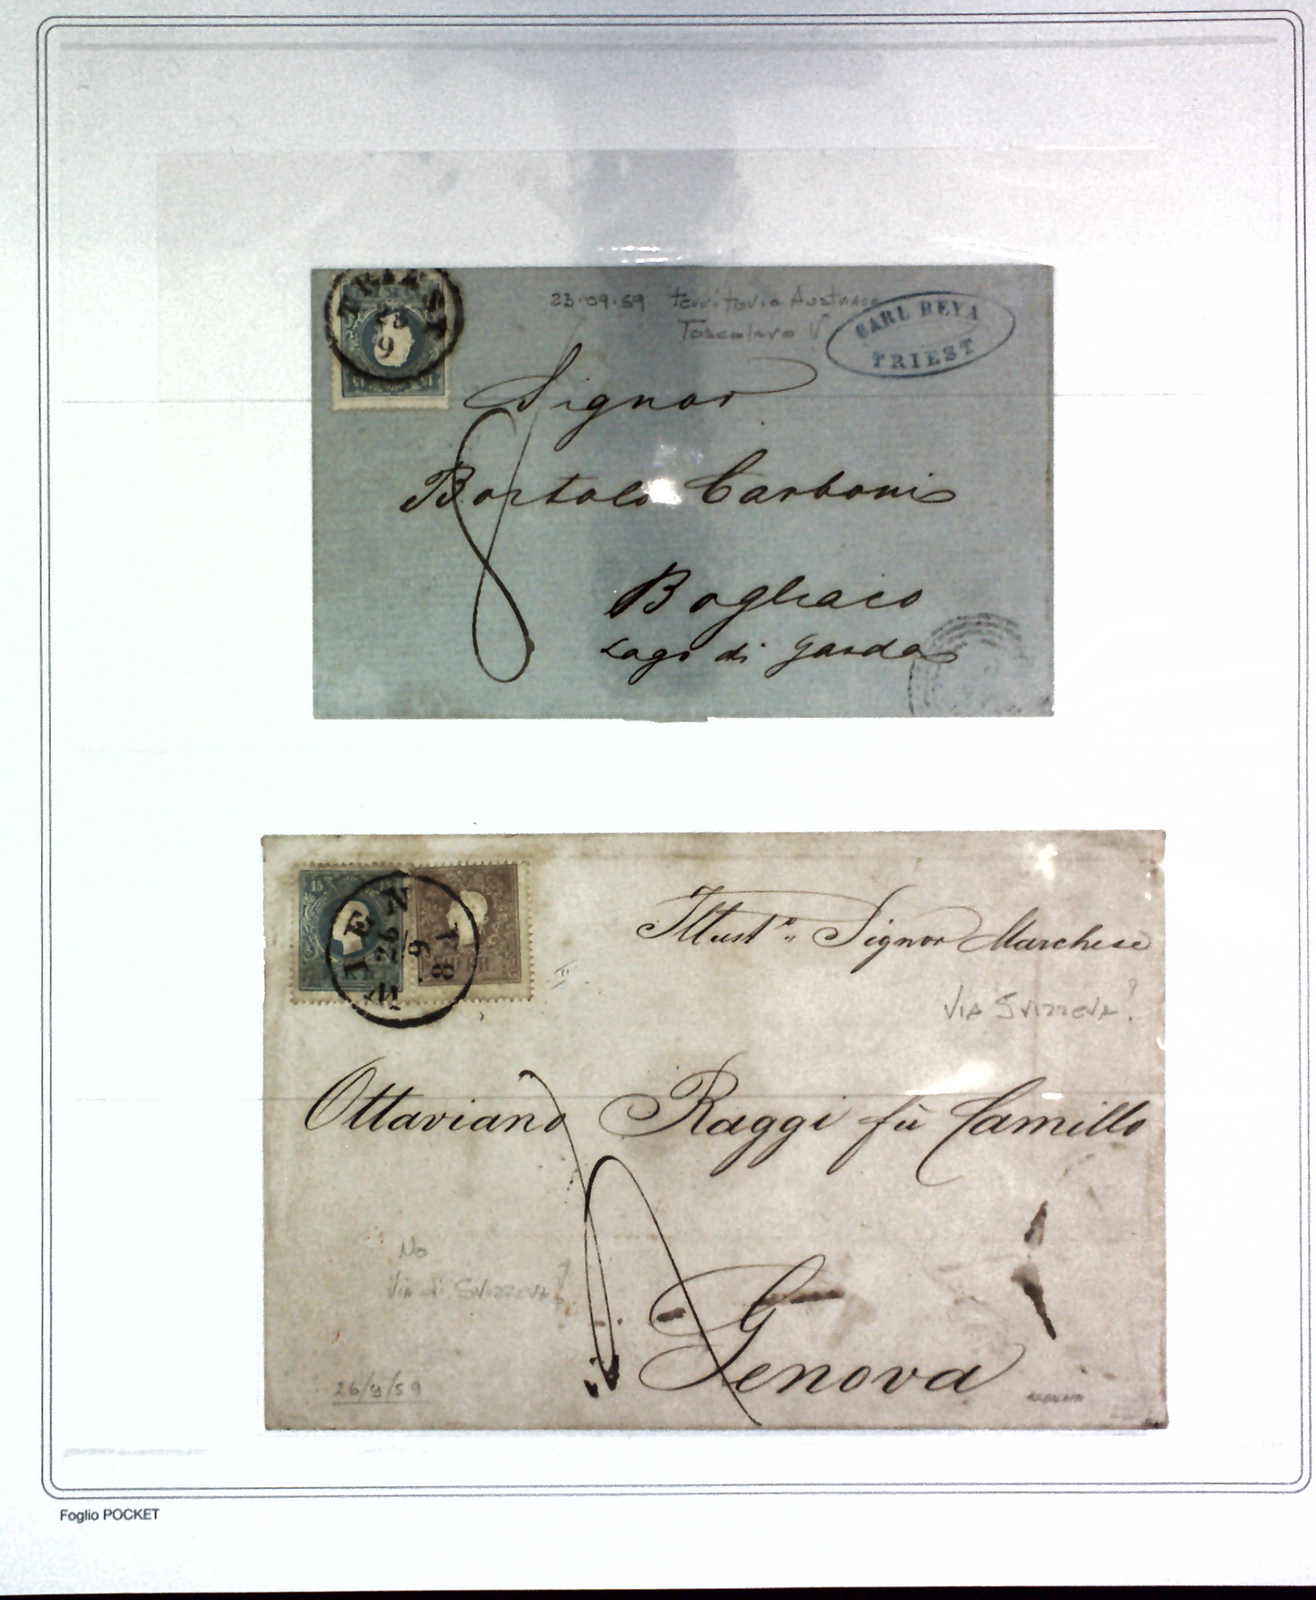 TRIEST
23
9
23·09·59 territorio Austriaco
Toscolano V
CARL REYA
TRIEST
Signor
Bortolo Carboni
8
Bogliaco
Lago di Garda
15
WIEN
26
9
8 1
Illust.º Signor Marchese
II
VIA SVIZZERA?
Ottaviano Raggi fù Camillo
No
Via di SVIZZERA?
Genova
26/9/59
Foglio POCKET